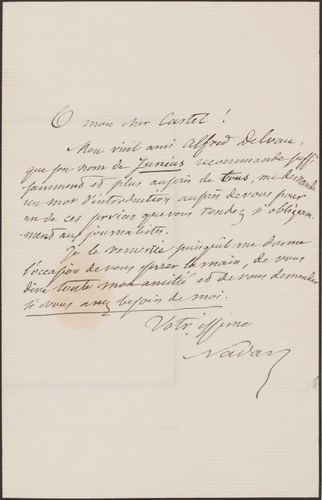 O mon cher Castel !
Mon vieil ami Alfred Delvau,
que son nom de Junius recommande suffi
samment et plus auprès de tous, me demande
un mot d'introduction auprès de vous pour
un de ces services que vous rendez si obligeam-
ment aux journalistes.
Je le remercie puisqu'il me donne
l'occasion de vous serrer la main, de vous
dire toute mon amitié et de vous demander
si vous avez besoin de moi.
Votrissime
Nadar